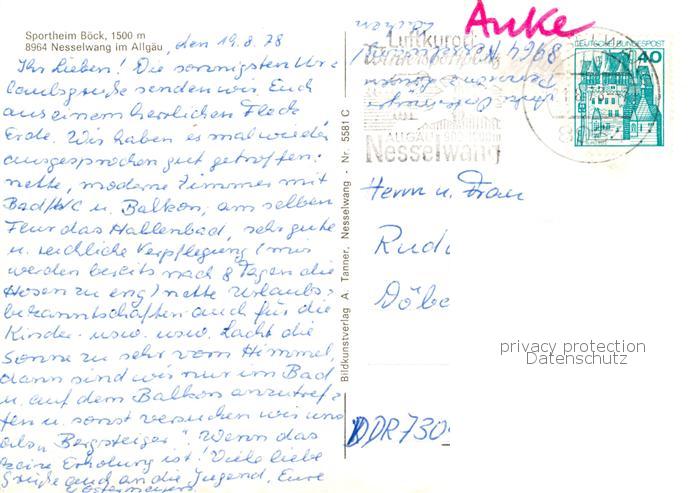 Sportheim Böck, 1500 m
8964 Nesselwang im Allgäu
den 19.8.78
Ihr Lieben! Die sonnigsten Ur=
laubsgrüße senden wir Euch
aus einem herrlichen Fleck
Erde. Wir haben es mal wieder
ausgesprochen gut getroffen:
nette, moderne Zimmer mit
Bad/WC u. Balkon, am selben
Flur das Hallenbad, sehr gute
u. reichliche Verpflegung (mir
werden bereits nach 8 Tagen die
Hosen zu eng) nette Urlaubs=
bekanntschaften auch für die
Kinder usw. usw. Lacht die
Sonne zu sehr vom Himmel,
dann sind wir nur im Bad
u. auf dem Balkon anzutref=
fen u. sonst versuchen wir uns
als "Bergsteiger". Wenn das
keine Erholung ist! Viele liebe
Grüße auch an die Jugend, Eure
Bildkunstverlag A. Tanner, Nesselwang - Nr. 5581 C
Anke
8964 Nesselwang
Luftkurort
Wintersportplatz
ALLGÄU
Nesselwang
DEUTSCHE BUNDESPOST
40
Herrn u. Frau
Rudi
Döbe
DDR 730
privacy protection
Datenschutz